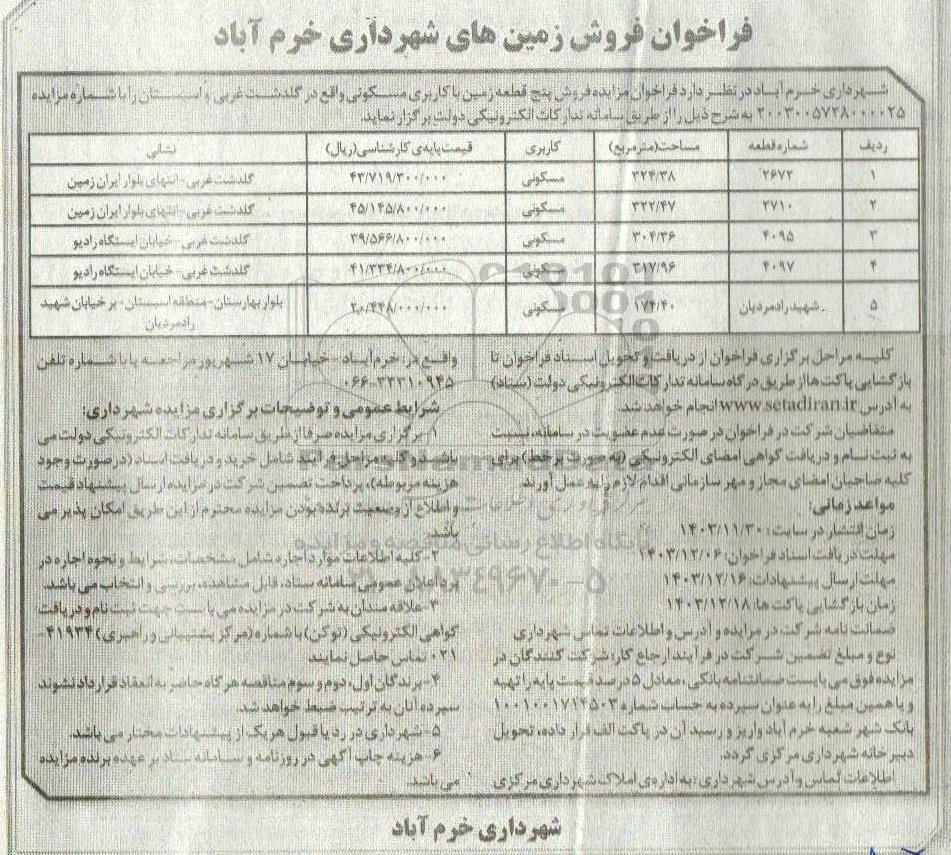 فراخوان فروش زمین های شهرداری خرم آباد
شهرداری خرم آباد در نظر دارد فراخوان مزایده فروش پنج قطعه زمین با کاربری مسکونی واقع در گلدشت غربی و اسبستان را با شماره مزایده
۲۰۰۳۰۰۵۷۲۸۰۰۰۰۲۵ به شرح ذیل را از طریق سامانه تدارکات الکترونیکی دولت برگزار نماید.
ردیف شماره قطعه مساحت(مترمربع) کاربری قیمت پایه‌ی کارشناسی(ریال) نشانی
۱ ۲۶۷۲ ۳۲۴/۳۸ مسکونی ۴۳/۷۱۹/۳۰۰/۰۰۰ گلدشت غربی-انتهای بلوار ایران زمین
۲ ۲۷۱۰ ۳۲۲/۴۷ مسکونی ۴۵/۱۴۵/۸۰۰/۰۰۰ گلدشت غربی-انتهای بلوار ایران زمین
۳ ۴۰۹۵ ۳۰۴/۳۶ مسکونی ۳۹/۵۶۶/۸۰۰/۰۰۰ گلدشت غربی-خیابان ایستگاه رادیو
۴ ۴۰۹۷ ۳۱۷/۹۶ مسکونی ۴۱/۳۳۴/۸۰۰/۰۰۰ گلدشت غربی-خیابان ایستگاه رادیو
۵ شهید رادمردیان ۱۷۴/۴۰ مسکونی ۲۰/۴۴۸/۰۰۰/۰۰۰ بلوار بهارستان-منطقه اسبستان-بر خیابان شهید
رادمردیان
کلیه مراحل برگزاری فراخوان از دریافت و تحویل اسناد فراخوان تا
بازگشایی پاکت ها از طریق درگاه سامانه تدارکات الکترونیکی دولت (ستاد)
به آدرس www.setadiran.ir انجام خواهد شد.
متقاضیان شرکت در فراخوان در صورت عدم عضویت در سامانه، نسبت
به ثبت نام و دریافت گواهی امضای الکترونیکی (به صورت برخط) برای
کلیه صاحبان امضای مجاز و مهر سازمانی اقدام لازم را به عمل آورند.
مواعد زمانی:
زمان انتشار در سایت: ۱۴۰۳/۱۱/۳۰
مهلت دریافت اسناد فراخوان: ۱۴۰۳/۱۲/۰۶
مهلت ارسال پیشنهادات: ۱۴۰۳/۱۲/۱۶
زمان بازگشایی پاکت ها: ۱۴۰۳/۱۲/۱۸
ضمانت نامه شرکت در مزایده و آدرس و اطلاعات تماس شهرداری
نوع و مبلغ تضمین شرکت در فرآیند ارجاع کار: شرکت کنندگان در
مزایده فوق می بایست ضمانتنامه بانکی، معادل ۵ درصد قیمت پایه را تهیه
و یا همین مبلغ را به عنوان سپرده به حساب شماره ۱۰۰۱۰۰۱۷۱۴۵۰۳
بانک شهر شعبه خرم آباد واریز و رسید آن در پاکت الف قرار داده، تحویل
دبیرخانه شهرداری مرکزی گردد.
اطلاعات تماس و آدرس شهرداری: به اداره‌ی املاک شهرداری مرکزی
واقع در: خرم آباد - خیابان ۱۷ شهریور مراجعه یا با شماره تلفن
۰۶۶-۳۳۳۱۰۹۴۵
شرایط عمومی و توضیحات برگزاری مزایده شهرداری:
۱- برگزاری مزایده صرفا از طریق سامانه تدارکات الکترونیکی دولت می
باشد و کلیه مراحل فرآیند شامل خرید و دریافت اسناد (در صورت وجود
هزینه مربوطه)، پرداخت تضمین شرکت در مزایده، ارسال پیشنهاد قیمت
و اطلاع از وضعیت برنده بودن مزایده محترم از این طریق امکان پذیر می
باشد.
۲-کلیه اطلاعات موارد اجاره شامل مشخصات، شرایط و نحوه اجاره در
برد اعلان عمومی سامانه ستاد، قابل مشاهده، بررسی و انتخاب می باشد.
۳-علاقه مندان به شرکت در مزایده می بایست جهت ثبت نام و دریافت
گواهی الکترونیکی (توکن) با شماره (مرکز پشتیبانی و راهبری) ۴۱۹۳۴-
۰۲۱ تماس حاصل نمایند
۴-برندگان اول، دوم و سوم مناقصه هرگاه حاضر به انعقاد قرارداد نشوند
سپرده آنان به ترتیب ضبط خواهد شد.
۵-شهرداری در رد یا قبول هر یک از پیشنهادات مختار می باشد.
۶-هزینه چاپ آگهی در روزنامه و سامانه ستاد بر عهده برنده مزایده
می باشد.
شهرداری خرم آباد